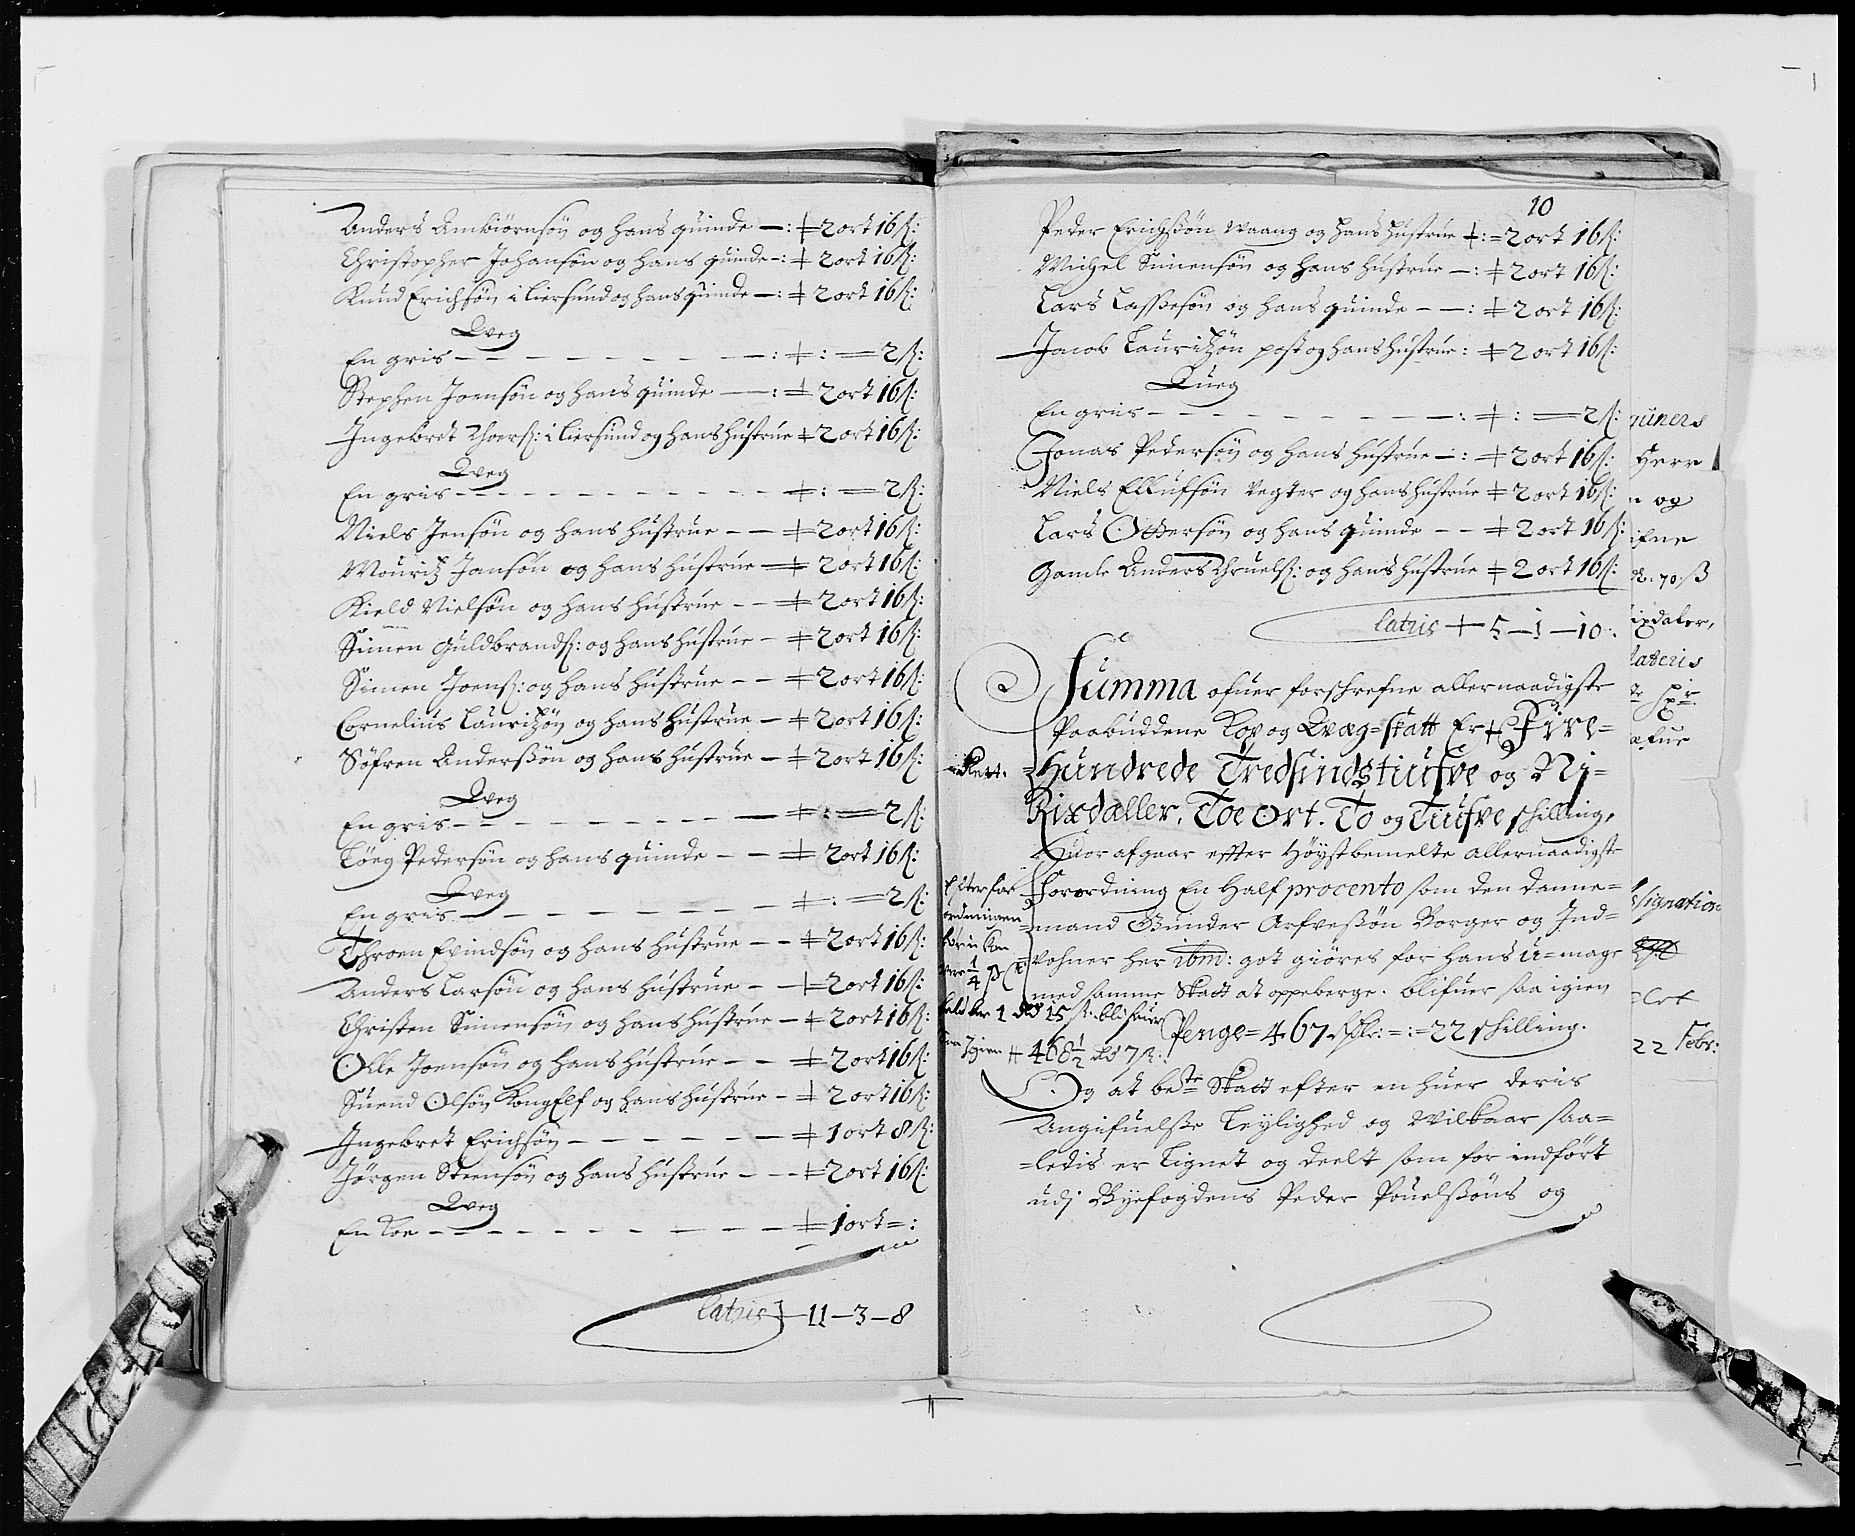 Anders Ambiørnsøn og hans quinde —: ǂ 2 ort 16 ß:
Christopher Johansøn og hans quinde —: ǂ 2 ort 16 ß:
Knud Erichsøn i Liersund og hans quinde —: ǂ 2 ort 16 ß:
Qveg
En gris — — — — — — —: ǂ: = 2 ß:
Stephen Joensøn og hans quinde —: ǂ 2 ort 16 ß:
Ingebret Thoerß: i Liersund og hans hustrue ǂ 2 ort 16 ß:
Qveg
En griis — — — — — — — ǂ: = 2 ß:
Niels Jensøn og hans hustrue — — ǂ 2 ort 16 ß:
Mouritz Jansøn og hans hustrue ǂ 2 ort 16 ß:
Kield Nielsøn og hans hustrue — — ǂ 2 ort 16 ß:
Simen Guldbrandß: og hans hustrue — ǂ 2 ort 16 ß:
Simen Joenß: og hans hustrue — — ǂ 2 ort 16 ß:
Cornelius Lauritzøn og hans hustrue — ǂ 2 ort 16 ß:
Søfren Anderssøn og hans hustrue — ǂ 2 ort 16 ß:
Qveg
En gris — — — — — — — ǂ: = 2 ß:
Tøeg Pedersøn og hans quinde — — ǂ 2 ort 16 ß:
Qveg
En gris — — — — — — — ǂ: = 2 ß:
Throen Evindsøn og hans hustrue — — ǂ 2 ort 16 ß:
Anders Larsøn og hans hustrue — — ǂ 2 ort 16 ß:
Christen Simensøn og hans hustrue — ǂ 2 ort 16 ß:
Olle Joensøn og hans hustrue — — ǂ 2 ort 16 ß:
Suend Olsøn KongElf og hans hustrue — ǂ 2 ort 16 ß:
Ingebret Erichsøn — — — — — ǂ 1 ort 8 ß:
Jørgen Steensøn og hans hustrue — — ǂ 2 ort 16 ß:
Qveg
En koe — — — — — — — ǂ 1 ort =:
Latris ǂ 11 — 3 — 8
10
Peder Erichssøn Waang og hans hustrue ǂ: = 2 ort 16 ß:
Michel Simensøn og hans hustrue —: ǂ 2 ort 16 ß:
Lars Lassesøn og hans quinde — —: ǂ 2 ort 16 ß:
Jacob Lauritzøn post og hans hustrue: ǂ 2 ort 16 ß:
Queg
En griis — — — — — — —: ǂ: = 2 ß:
Jonas Pedersøn og hans hustrue —: ǂ 2 ort 16 ß:
Niels Ellufsøn Vegter og hans hustrue ǂ 2 ort 16 ß:
Lars Ottersøn og hans quinde — — ǂ 2 ort 16 ß:
Gamle Anders Thruelß: og hans hustrue ǂ 2 ort 16 ß:
Latris ǂ 5 — 1 — 10:
Summa ofuer forschrefne allernaadigste
Paabuddene Kop og Qvæg=skatt Er ǂ Fire=
Hundrede Tredsindstiufve og Ni=
Rixdaller, Toe Ort. To og Tiufve skilling,
Huor afgaar effter Høystbemelte allernaadigste
forordning En Half procento som den danne=
mand Gunder Arfvessøn Borger og Ind=
vohner her ibm: got giøres for hans U=mage
med samme Skatt at oppeberge. blifuer saa igien
Penge = 467 Rdlr: =:= 22 skilling.
Rett.
Efter for
ordningen
¼
1 15 ß. blifuer
saa Igien ǂ 468½ 7 ß:
Og at bete Skatt efter en huer deris
Angifuelsse Leylighed og Wilkaar saa=
=ledis er Lignet og deelt som for indført
udj Byefogdens Peder Pouelssøns og
guners
Herr
n og
ifne
70: ß
ixdaler,
lateris
afue
signation
22 Febr: